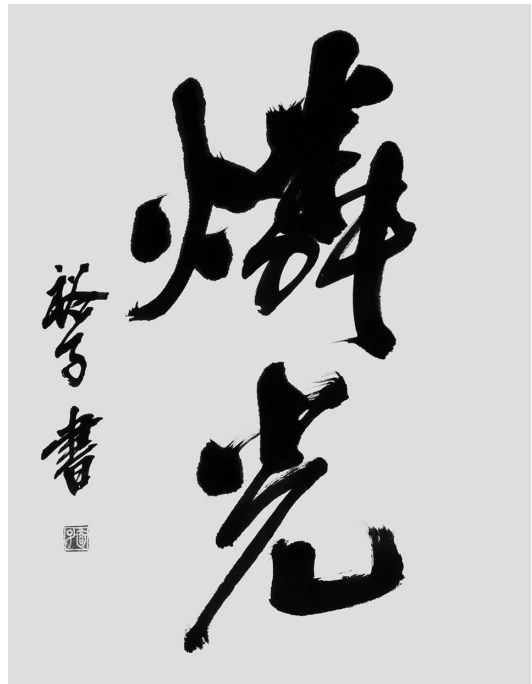 燐光
裕子書